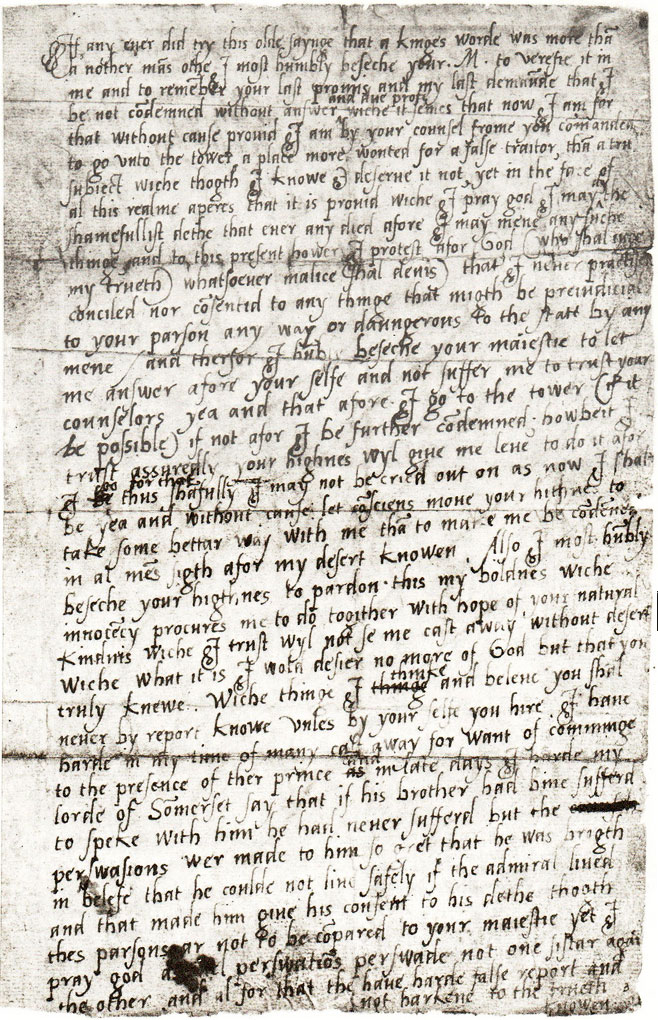 If any ever did try this olde saynge that a kinges worde was more thā
a nother mās othe I most humbly beseche your M. to verefie it in
me and to remēber your last promis and my last demaūde that I
be not cōdemned without answer and due profe wiche it semes that now I am for
that without cause provid I am by your counsel frome you comanded
to go unto the tower a place more wonted for a false traitor, thā a tru
subiect wiche thogth I knowe I deserve it not, yet in the face of
al this realme aperes that it is provid wiche I pray god I may dy the
shamefullist dethe that ever any died afore I may mene any suche
thinge and to this present hower I protest afor God (who shal iuge
my trueth) whatsoever malice shal devis) that I never practised
conciled nor cōsentid to any thinge that migth be preiudicial
to your parson any way or daungerous to the stat by any
mene and therfor I hūbly beseche your maiestie to let
me answer afore your selfe and not suffer me to trust your
counselors yea and that afore I go to the tower (if it
be possible) if not afor I be further cōdemned. howbeit I
trust assuredly your highnes wyl give me leve to do it afor
I go for that thus shāfully I may not be cried out on as now I shal
be yea and without cause let cōsciens move your hithnes to
take some bettar way with me thā to make me be cōdemned
in al mēs sigth afor my desert knowen. Also I most hūbly
beseche your higthnes to pardon this my boldnes wiche
innocēcy procures me to do togither with hope of your natural
kindnis wiche I trust wyl not se me cast away without desert
wiche what it is I wold desier no more of God but that you
truly knewe. Wiche thinge I thinke and beleve you shal
never by report knowe unles by your selfe you hire. I have
harde in my time of many cast away for want of comminge
to the presence of ther prince and in late days I harde my
lorde of Somerset say that if his brother had bine sufferd
to speke with him he had never sufferd but the
perswasions wer made to him so gret that he was brogth
in belefe that he coulde not live safely if the admiral lived
and that made him give his consent to his dethe thogth
thes parsons ar not to be cōpared to your maiestie yet I
pray god perswatiōs perswade not one sistar again
the other and al for that the have harde false report and
not harkene to the trueth knowen